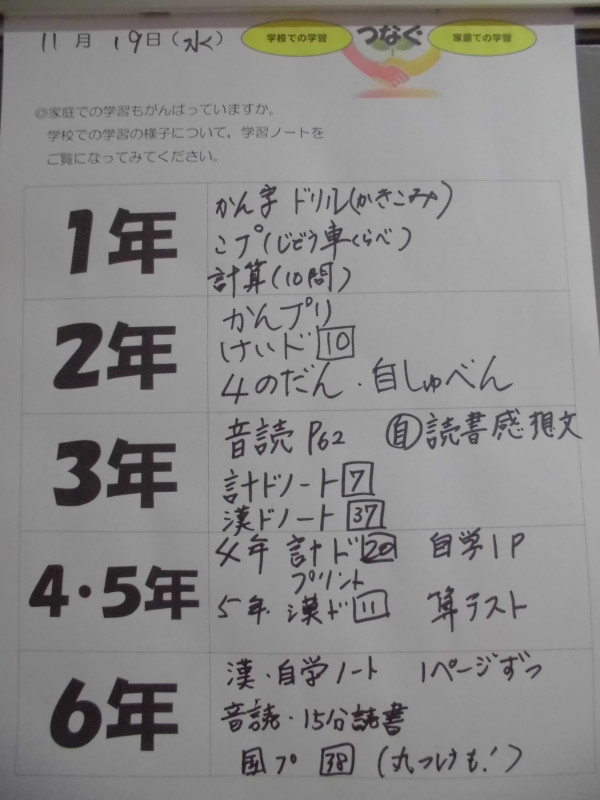 11月 19日(水)
学校での学習 つなぐ 家庭での学習
◎家庭での学習もがんばっていますか。
学校での学習の様子について、学習ノートを
ご覧になってみてください。
1年
かん字 ドリル(かきこみ)
こプ(じどう車くらべ)
計算(10問)
2年
かんプリ
けいド 10
4のだん・自しゅべん
3年
音読 P62 自 読書感想文
計ドノート 7
漢ドノート 37
4・5年
4年 計ド 20 自学1P
プリント
5年 漢ド 11 算テスト
6年
漢・自学ノート 1ページずつ
音読・15分読書
国プ 38 (丸つけも!)